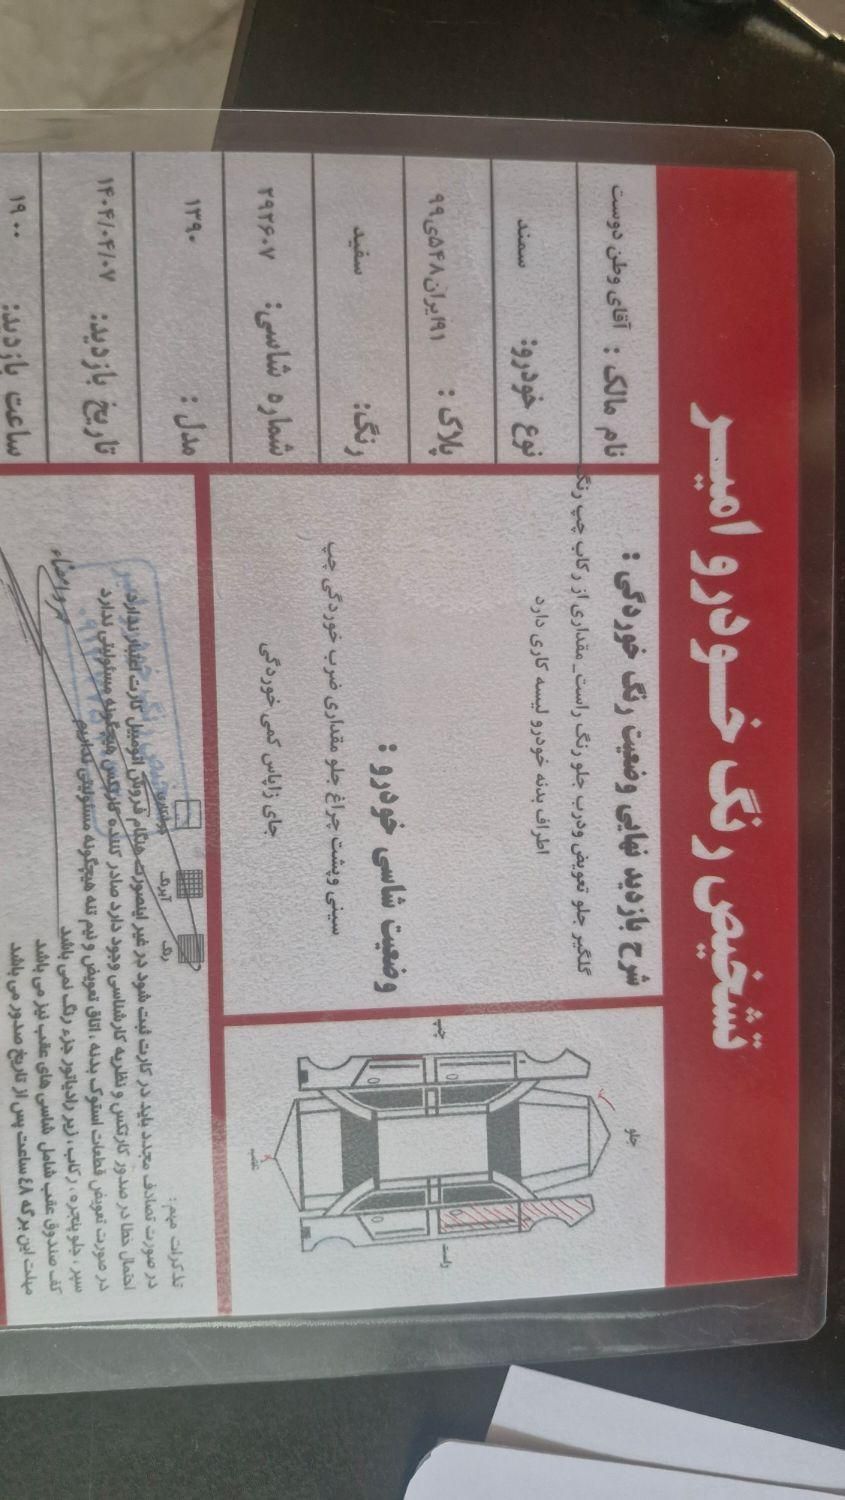 تشخیص رنگ خودرو امیر
نام مالک : آقای وطن دوست
نوع خودرو: سمند
پلاک : ۹۱ایران۵۴۸ی۹۹
رنگ: سفید
شماره شاسی: ۲۹۲۶۰۷
مدل : ۱۳۹۰
تاریخ بازدید: ۱۴۰۴/۰۴/۰۷
ساعت بازدید: ۱۹ ۰۰
شرح بازدید نهایی وضعیت رنگ خوردگی :
گلگیر جلو تعویض ودرب جلو رنگ راست_ مقداری از رکاب چپ رنگ
اطراف بدنه خودرو لیسه کاری دارد
وضعیت شاسی خودرو :
سینی وپشت چراغ جلو مقداری ضرب خوردگی چپ
جای زاپاس کمی خوردگی
جلو
چپ
راست
عقب
رنگ
آبرنگ
تذکرات مهم :
در صورت تصادف مجدد باید در کارت ثبت شود در غیر اینصورت هنگام فروش اتومبیل کارت اعتبار ندارد
احتمال خطا در صدور کارتکس و نظریه کارشناسی وجود دارد صادر کننده کارتکس هیچگونه مسئولیتی ندارد
در صورت تعویض قطعات استوک بدنه ، اتاق تعویض و نیم تنه هیچگونه مسئولیتی نداریم
سپر ، جلو پنجره ، رکاب ، زیر رادیاتور جزء رنگ نمی باشد
کف صندوق عقب شامل شاسی های عقب نیز می باشد
مهلت این برگه ٤٨ ساعت پس از تاریخ صدور می باشد
مهر و امضاء